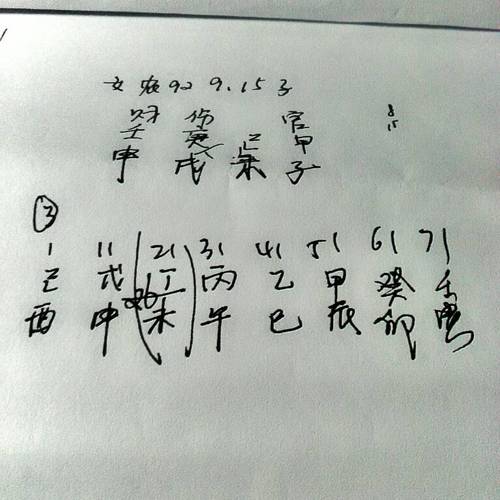 女 农92 9.15子
财 伤 官
壬 庚 己 甲
申 戌 未 子
8
15
③
1 11 21 31 41 51 61 71
己 戊 丁 丙 乙 甲 癸 壬
酉 申 未 午 巳 辰 卯 寅